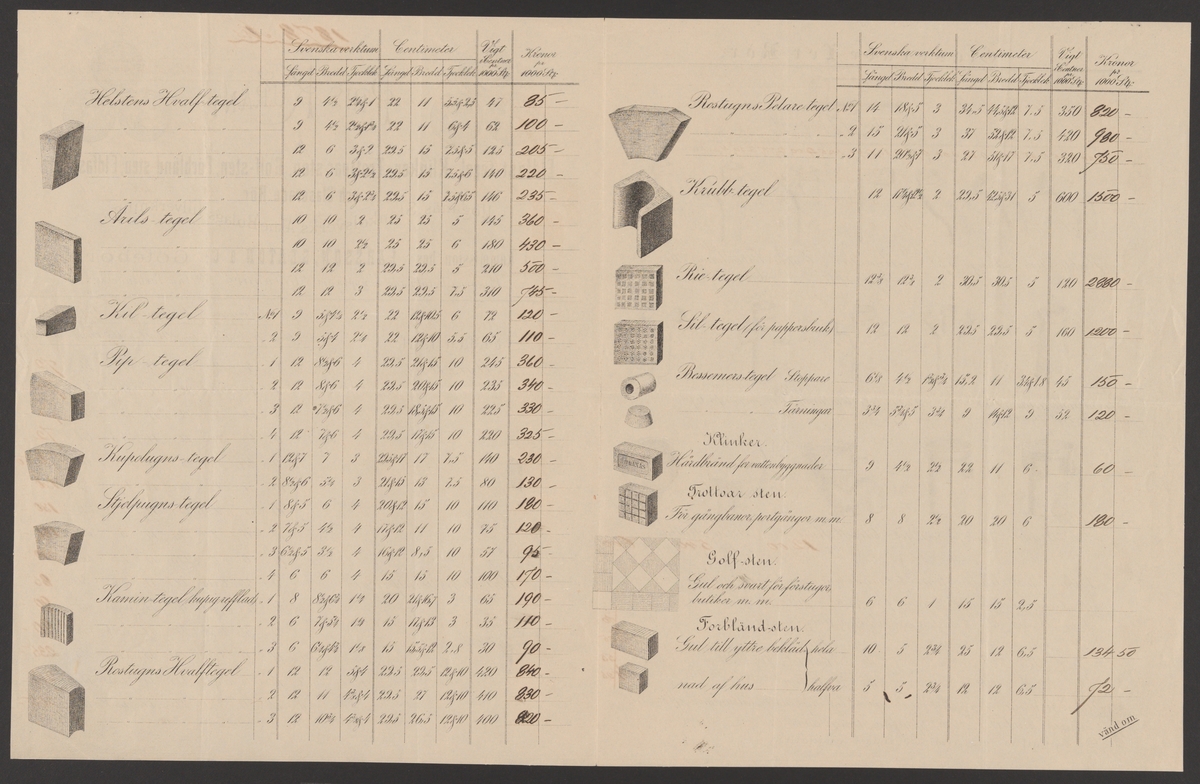 Svenska verktum Centimeter Vigt Centner pr 1000 St. Kronor pr 1000 St.
Längd Bredd Tjocklek Längd Bredd Tjocklek
Helstens Hvalf-tegel 9 4½ 22 11 47 85 –
9 4½ 22 11 6&4 62 100 –
12 6 3&2 29.5 15 7.5&5 125 205 –
12 6 29.5 15 7.5&6 140 220 –
12 6 29.5 15 7.5&6.5 146 235 –
Ärils-tegel 10 10 2 25 25 5 145 360 –
10 10 2½ 25 25 6 180 430 –
12 12 2 29.5 29.5 5 210 500 –
12 12 3 29.5 29.5 7.5 310 745 –
Kil-tegel No 1 9 2½ 22 6 72 120 –
2 9 22 12&10 5.5 65 110 –
Pip-tegel 1 12 8½&6 4 29.5 21&15 10 245 360 –
2 12 8&6 4 29.5 20&15 10 235 340 –
3 12 7½&6 4 29.5 18.5&15 10 225 330 –
4 12 7&6 4 29.5 17&15 10 220 325 –
Kupolugns-tegel 1 12&7 7 3 29.5&17 17 7.5 140 230 –
2 8½&6 5½ 3 21&15 13 7.5 80 130 –
Stjelpugns-tegel 1 8&5 6 4 20&12 15 10 110 180 –
2 7&5 4½ 4 17&12 11 10 75 120 –
3 6½&5 3½ 4 16&12 8,5 10 57 95 –
4 6 6 4 15 15 10 100 170 –
Kamin-tegel 1 8 20 3 65 190 –
2 6 15 17&13 3 35 110 –
3 6 15 2.8 30 90 –
Rostugns Hvalftegel 1 12 12 5&4 29.5 29.5 12&10 420 840 –
2 12 11 29.5 27 12&10 410 830 –
3 12 29.5 26,5 12&10 400 820 –
Svenska verktum Centimeter Vigt Centner pr 1000 St. Kronor pr 1000 St.
Längd Bredd Tjocklek Längd Bredd Tjocklek
Rostugns-Pelare-tegel No 1 14 18&5 3 34.5 44.5&12 7.5 350 820 –
2 15 21&5 3 37 52&12 7.5 420 980 –
3 11 3 27 51&17 7.5 320 750 –
Krubb-tegel 12 2 29,5 5 600 1500 –
Rie-tegel 2 30.5 30.5 5 130 –
Sil-tegel (för pappersbruk) 12 12 2 29.5 29.5 5 160 1200 –
Bessemers-tegel Stoppare 4½ 11 45 150 –
Tärningar 9 9 52 120 –
Klinker.
Hårdbränd för vattenbyggnader 9 4½ 2½ 22 11 6 60 –
Trottoar-sten.
För gångbanor, portgångar m.m. 8 8 2½ 20 20 6 180 –
Golf-sten.
Gul och svart för förstugor,
butiker m.m. 6 6 1 15 15 2,5
Förbländ-sten.
Gul till yttre bekläd- hela 10 5 2¾ 25 12 6,5 134 50
nad af hus halfva 5 5 2¾ 12 12 6,5 72 –
vänd om